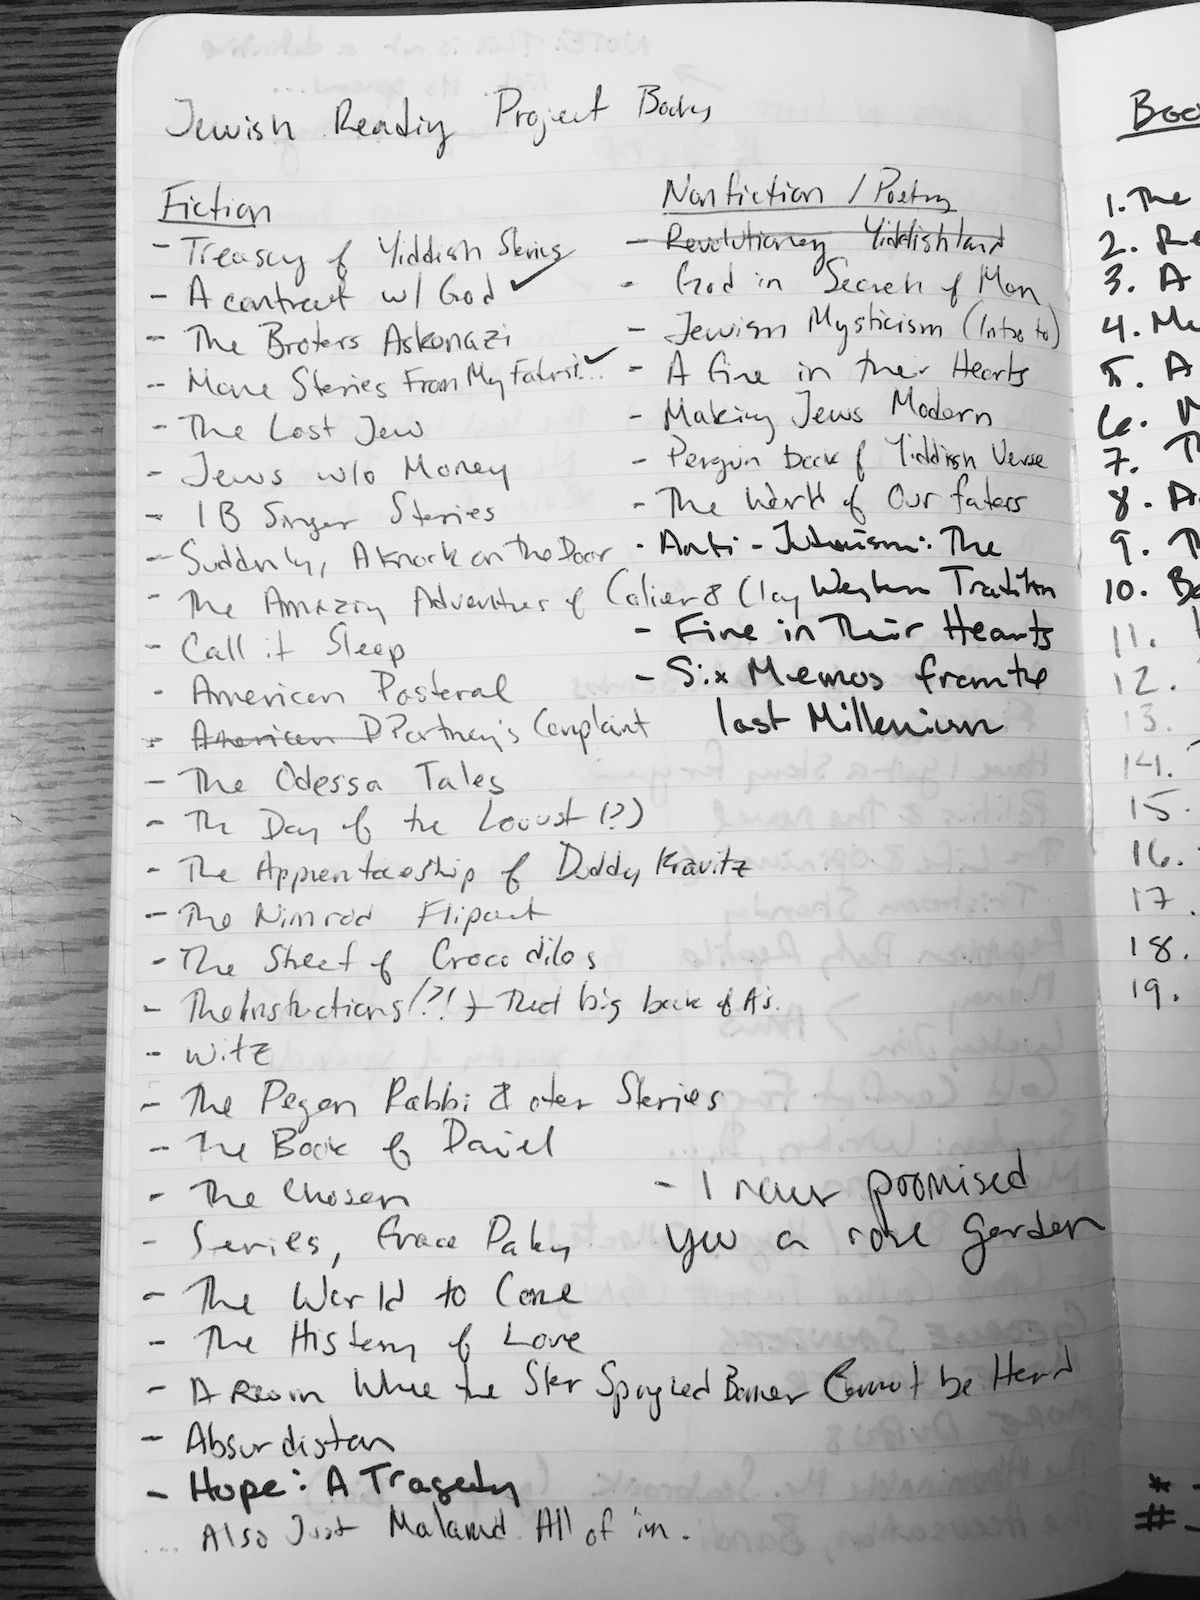 Jewish Reading Project Books
Fiction
- Treasury of Yiddish Stories
- A contract w/ God ✓
- The Broters Askenazi
- More Stories From My Father... ✓
- The Last Jew
- Jews w/o Money
- IB Singer Stories
- Suddenly, A Knock on the Door
- The Amazing Adventures of Calier & Clay
- Call it Sleep
- American Pastoral
- American Portney's Complaint
- The Odessa Tales
- The Day of the Locust (?)
- The Apprenticeship of Duddy Kravitz
- The Nimrod Flipout
- The Street of Crocodiles
- The Instructions (?!) That big book of A's.
- Witz
- The Pagan Rabbi & oter Stories
- The Book of Daniel
- The Chosen
- Stories, Grace Paley
- The World to Come
- The History of Love
- A Room Where the Star Spangled Banner Cannot be Heard
- Absurdistan
- Hope: A Tragedy
... Also Just Malamud. All of 'im.
Nonfiction / Poetry
- Revolutionary Yiddishland
- God in Search of Man
- Jewish Mysticism (Intro to)
- A fire in their Hearts
- Making Jews Modern
- Penguin book of Yiddish Verse
- The World of Our faters
- Anti-Judaism: The
Western Tradition
- Fire in Their Hearts
- Six Memos from the
last Millenium
- I never promised
you a rose garden
Boo
1. The
2. Re
3. A
4. Me
5. A
6.
7. Th
8. A
9. T
10. Be
11.
12.
13.
14.
15.
16.
17.
18.
19.
*
#